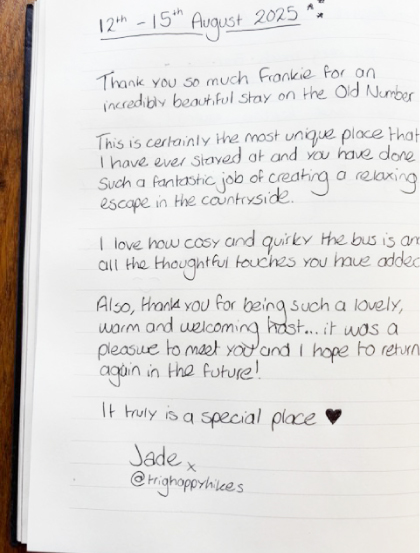 12th - 15th August 2025
Thank you so much Frankie for an
incredibly beautiful stay on the Old Number
This is certainly the most unique place that
I have ever stayed at and you have done
such a fantastic job of creating a relaxing
escape in the countryside.
I love how cosy and quirky the bus is an
all the thoughtful touches you have added
Also, thank you for being such a lovely,
warm and welcoming host... it was a
pleasure to meet you and I hope to return
again in the future!
It truly is a special place ♥
Jade x
@trighappyhikes